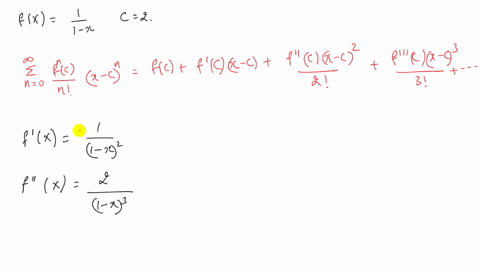 f(x) = 1/(1-x)   C = 2.
∞∑n=0 f(c)/n! (x-c)^n = f(c) + f'(c)(x-c) + f''(c)(x-c)^2/2! + f'''(c)(x-c)^3/3! + ----
f'(x) = 1/(1-x)^2
f''(x) = 2/(1-x)^3